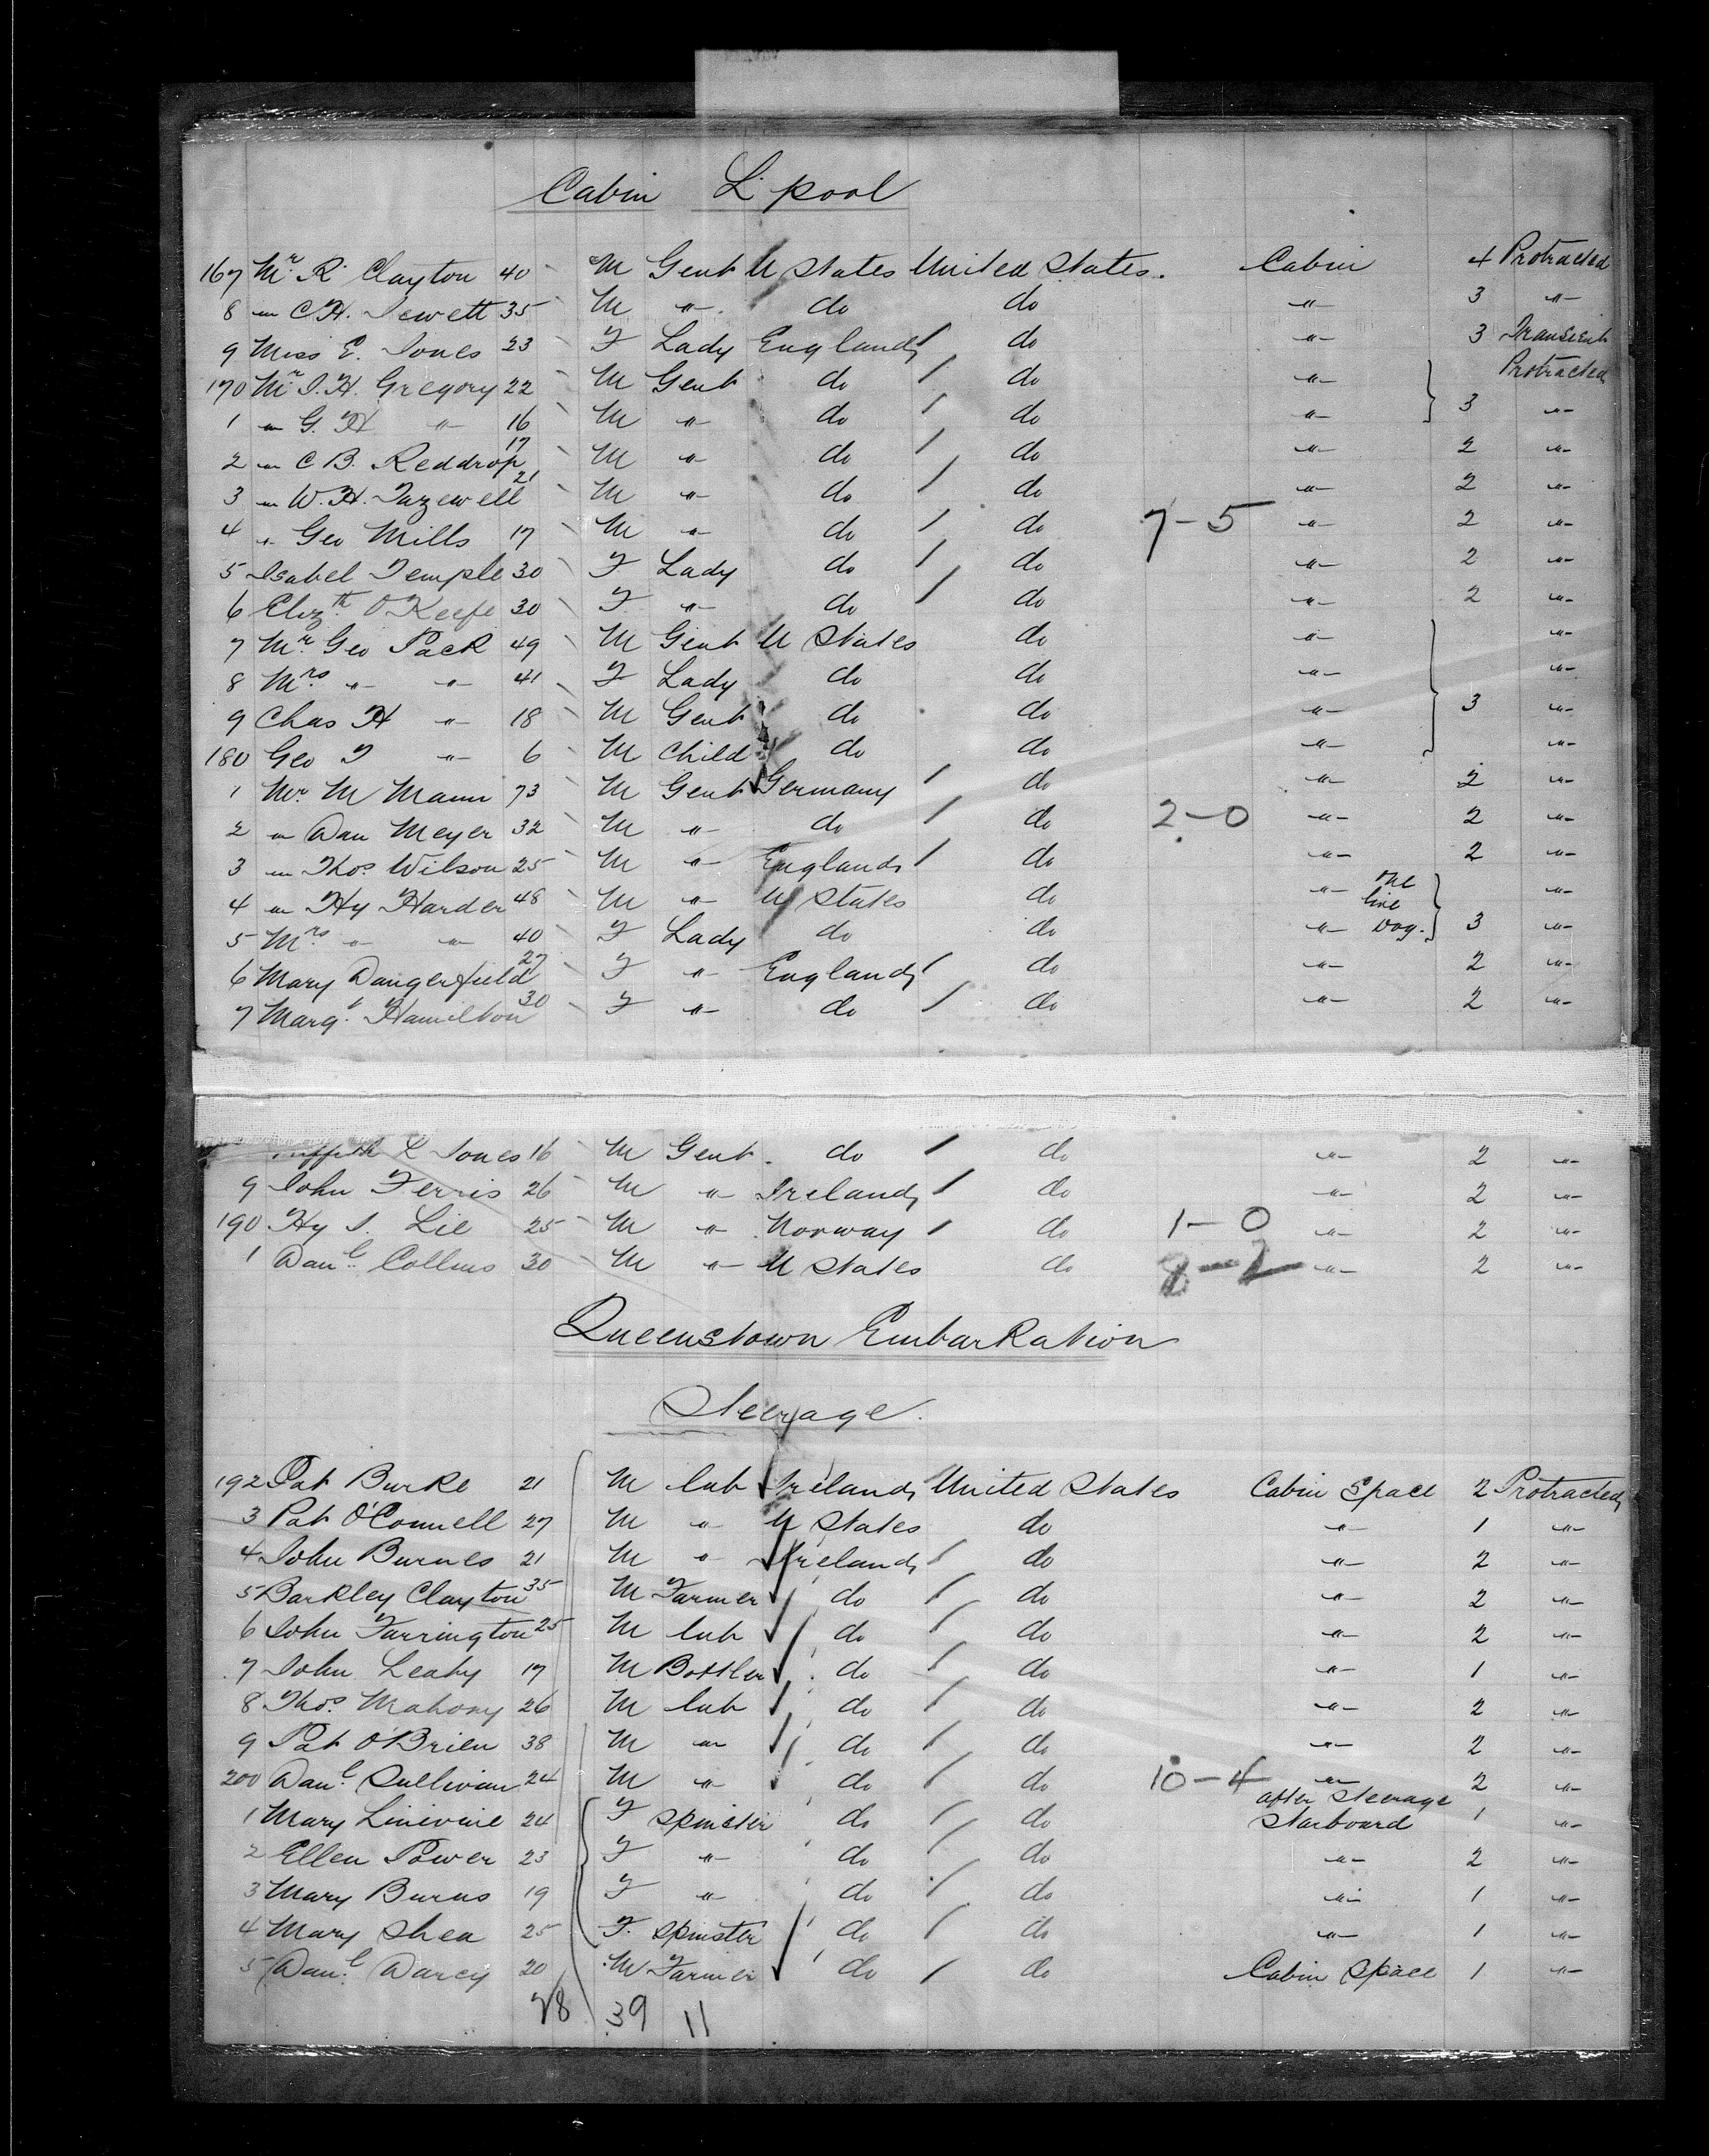 Cabin L'pool
167 Mr. R. Clayton 40 M Gent U States United States. Cabin 4 Protracted
8 " C.H. Jewett 35 M " do do " 3 "
9 Miss E. Jones 23 F Lady England / do " 3 Transient
170 Mr. J.H. Gregory 22 M Gent do / do " Protracted
1 " G. H " 16 M " do / do " 3 "
2 " C B. Reddrop 17 M " do / do " 2 "
3 " W. H. Tazewell 21 M " do / do " 2 "
4 " Geo Mills 17 M " do / do 7-5 " 2 "
5 Isabel Temple 30 F Lady do / do " 2 "
6 Elizth O'Keefe 30 F " do / do " 2 "
7 Mr. Geo Pack 49 M Gent U States do " "
8 Mrs. " " 41 F Lady do do " "
9 Chas H " 18 M Gent do do " 3 "
180 Geo T " 6 M Child do do " "
1 Mr. M Mann 73 M Gent Germany / do " 2 "
2 " Dan Meyer 32 M " do / do 2-0 " 2 "
3 " Thos. Wilson 25 M " England / do " 2 "
4 " Hy Harder 48 M " U States do " one live "
5 Mrs. " " 40 F Lady do do " Dog. 3 "
6 Mary Dangerfield 27 F " England / do " 2 "
7 Margt. Hamilton 30 F " do / do " 2 "
L Jones 16 M Gent. do / do " 2 "
9 John Ferris 26 M " Ireland / do " 2 "
190 Hy J. Lie 25 M " Norway / do 1-0 " 2 "
1 Danl. Collins 30 M " U States do 8-2 " 2 "
Queenstown Embarkation
Steerage.
192 Pat Burke 21 M lab Ireland / United States Cabin Space 2 Protracted
3 Pat O'Connell 27 M " U States do " 1 "
4 John Burnes 21 M " Ireland / do " 2 "
5 Barkley Clayton 35 M Farmer do / do " 2 "
6 John Farrington 25 M lab do / do " 2 "
7 John Leahy 17 M Bottler do / do " 1 "
8 Thos. Mahony 26 M lab do / do " 2 "
9 Pat O'Brien 38 M " do / do " 2 "
200 Danl. Sullivan 24 M " do / do 10-4 " 2 "
after Steerage
1 Mary 24 F Spinster do / do Starboard 1 "
2 Ellen Power 23 F " do / do " 2 "
3 Mary Burns 19 F " do / do " 1 "
4 Mary Shea 25 F. Spinster do / do " 1 "
5 Danl. Darcy 20 M Farmer do / do Cabin Space 1 "
28 39 11